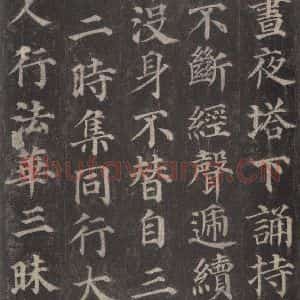 晝夜塔下誦持
不斷經聲遞續
沒身不替自三
二時集同行大
人行法華三昧
shufawang.cn